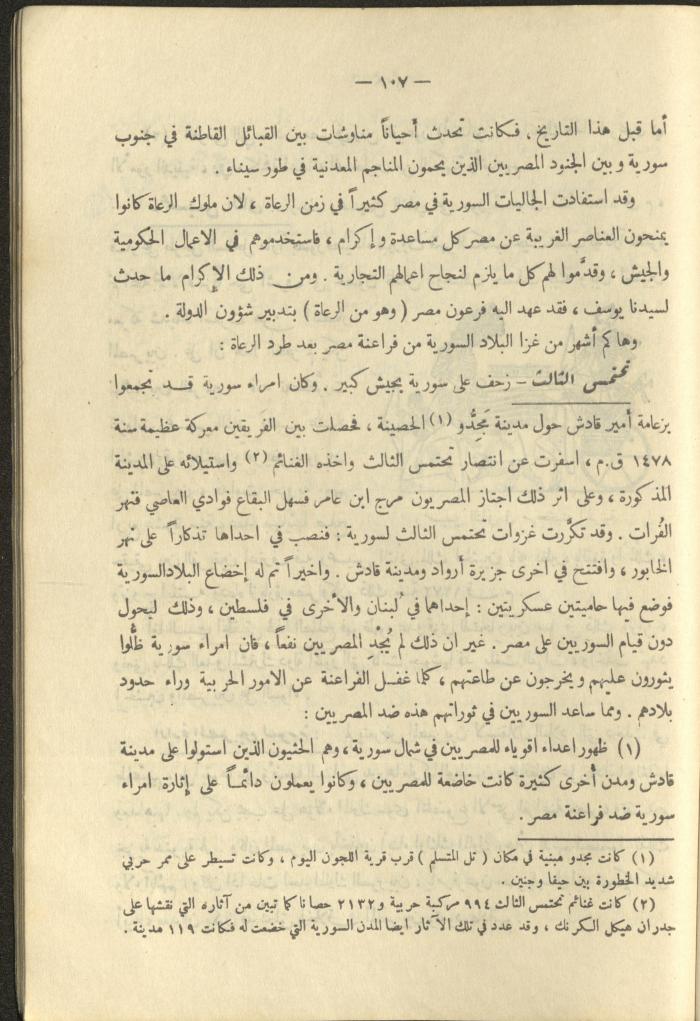 — ١٠٧ —
أما قبل هذا التاريخ ، فكانت تحدث أحياناً مناوشات بين القبائل القاطنة في جنوب
سورية وبين الجنود المصريين الذين يحمون المناجم المعدنية في طور سيناء .
وقد استفادت الجاليات السورية في مصر كثيراً في زمن الرعاة ، لان ملوك الرعاة كانوا
يمنحون العناصر الغريبة عن مصر كل مساعدة وإكرام ، فاستخدموهم في الاعمال الحكومية
والجيش ، وقدَّموا لهم كل ما يلزم لنجاح اعمالهم التجارية . ومن ذلك الإكرام ما حدث
لسيدنا يوسف ، فقد عهد اليه فرعون مصر ( وهو من الرعاة ) بتدبير شؤون الدولة .
وهاكم أشهر من غزا البلاد السورية من فراعنة مصر بعد طرد الرعاة :
تحتمس الثالث – زحف على سورية بجيش كبير . وكان امراء سورية قد تجمعوا
بزعامة أمير قادش حول مدينة مَجِدُّو (١) الحصينة ، فحصلت بين الفريقين معركة عظيمة سنة
١٤٧٨ ق.م ، اسفرت عن انتصار تحتمس الثالث واخذه الغنائم (٢) واستيلائه على المدينة
المذكورة ، وعلى اثر ذلك اجتاز المصريون مرج ابن عامر فسهل البقاع فوادي العاصي فنهر
الفُرات . وقد تكرَّرت غزوات تحتمس الثالث لسورية : فنصب في احداها تذكاراً على نهر
الخابور ، وافتتح في اخرى جزيرة أرواد ومدينة قادش . واخيراً تم له إخضاع البلاد السورية
فوضع فيها حاميتين عسكريتين : إحداهما في لبنان والأخرى في فلسطين ، وذلك ليحول
دون قيام السوريين على مصر . غير ان ذلك لم يُجْدِ المصريين نفعاً ، فان امراء سورية ظلُّوا
يثورون عليهم ويخرجون عن طاعتهم ، كلما غفل الفراعنة عن الامور الحربية وراء حدود
بلادهم . ومما ساعد السوريين في ثوراتهم هذه ضد المصريين :
(١) ظهور اعداء اقوياء للمصريين في شمال سورية ، وهم الحثيون الذين استولوا على مدينة
قادش ومدن أخرى كثيرة كانت خاضعة للمصريين ، وكانوا يعملون دائماً على إثارة امراء
سورية ضد فراعنة مصر .
(١) كانت مجدو مبنية في مكان ( تل المتسلم ) قرب قرية اللجون اليوم ، وكانت تسيطر على ممر حربي
شديد الخطورة بين حيفا وجنين .
(٢) كانت غنائم تحتمس الثالث ٩٩٤ مركبة حربية و ٢١٣٢ حصانا كما تبين من آثاره التي نقشها على
جدران هيكل الكرنك ، وقد عدد في تلك الآثار ايضا المدن السورية التي خضعت له فكانت ١١٩ مدينة .